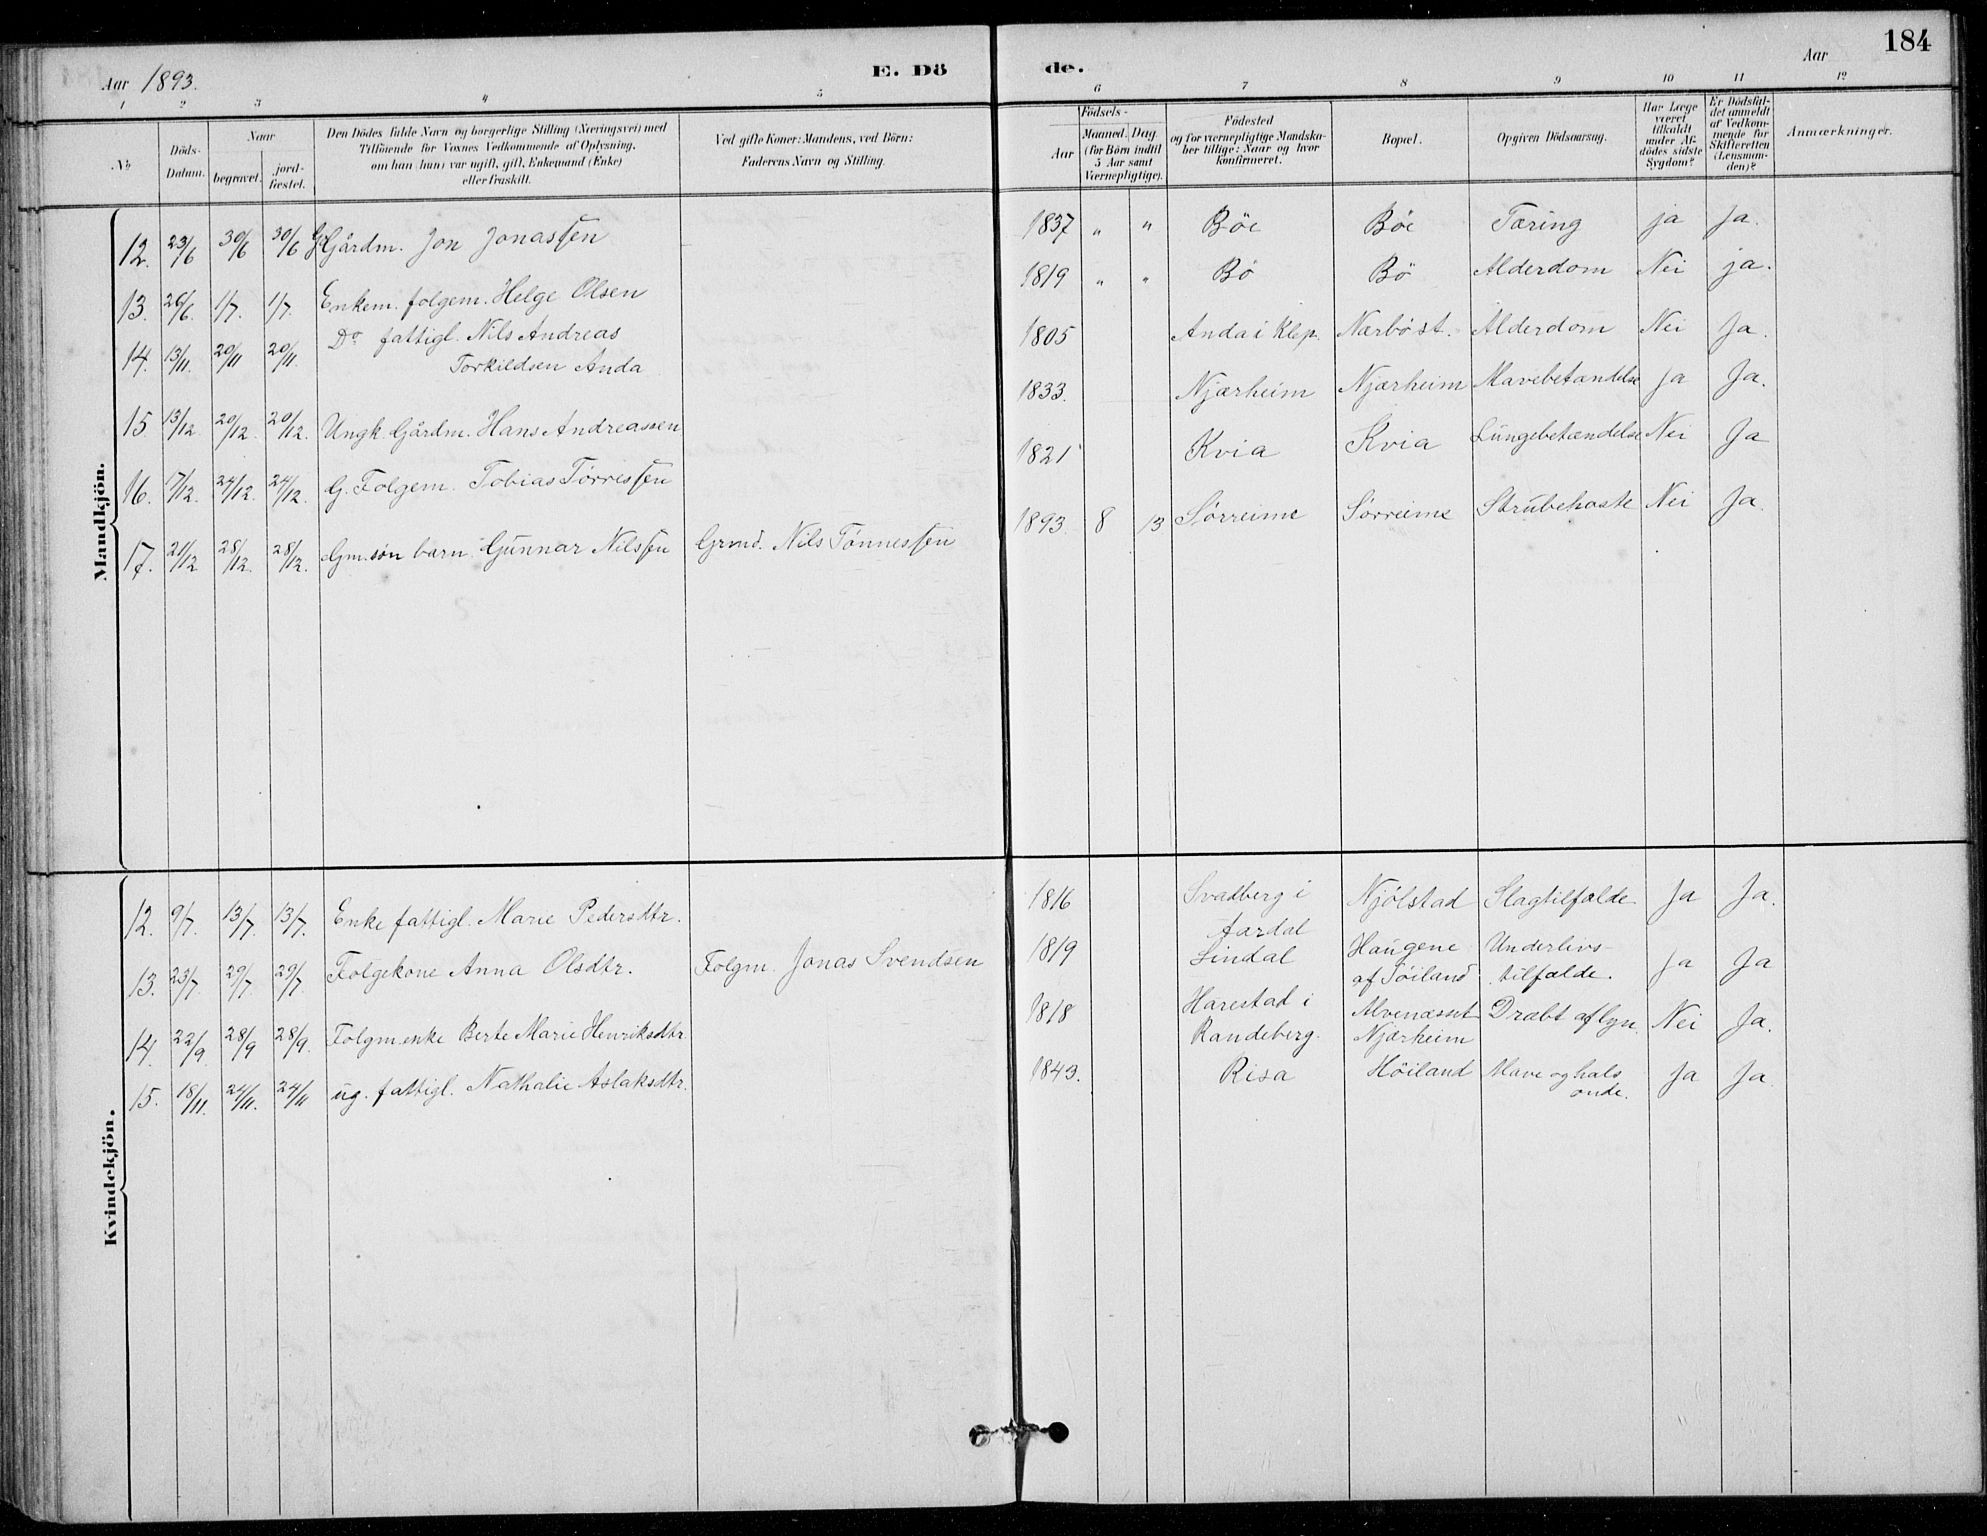 184
Aar 1893. E. Dö de. Aar
1 2 3 4 5 6 7 8 9 10 11 12
No Döds-Datum. Naar begravet. jord-fæstet. Den Dödes fulde Navn og borgerlige Stilling (Næringsvei) med Tilföiende for Voxnes Vedkommende af Oplysning, om han (hun) var ugift, gift, Enkemand (Enke) eller fraskilt. Ved gifte Koner: Mandens, ved Börn: Faderens Navn og Stilling. Födsels- Aar Maaned. Dag. (for Börn indtil 5 Aar samt Værnepligtige). Födested og for værnepligtige Mandska-ber tillige: Naar og hvor konfirmeret. Bopæl. Opgiven Dödsaarsag. Har Læge været tilkaldt under Af-dödes sidste Sygdom? Er Dödsfal-det anmeldt af Vedkom-mende for Skifteretten (Lensman-den)? Anmærkninger.
Mandkjön.
12. 23/6 30/6 30/6 G. Gårdm. Jon Jonassen 1837 " " Böe Böe Tæring ja Ja.
13. 26/6. 1/7. 1/7. Enkem. folgem. Helge Olsen 1819 " " Bö Bö Alderdom Nei ja.
14. 13/11. 20/11 20/11. Do fattigl. Nils Andreas 1805 Anda i Klep. Nærböst. Alderdom Nei Ja.
Torkildsen Anda
15 13/12 20/12. 20/12. Ungk. Gårdm. Hans Andreassen 1833. Njærheim Njærheim Mavebetændelse ja Ja.
16. 17/12. 24/12. 24/12. G. Folgem. Tobias Tørressen 1821 Kvia Kvia Lungebetændelse Nei Ja
17. 21/12 28/12. 28/12. Gm. søn barn Gunnar Nilssen Grmd. Nils Tønnessen 1893. 8 13 Sørreime Sørreime Strubehoste Nei Ja
Kvindekjön.
12. 9/7. 13/7. 13/7. Enke fattigl. Marie Pedersdtr. 1816 Svadberg i Njölstad Slagtilfælde Ja Ja.
Aardal
13. 23/7 29/7. 29/7. Folgekone Anna Olsdtr. Folgm. Jonas Svendsen 1819 Lindal Haugene Underlivs- Ja Ja
af Töiland tilfælde.
14. 22/9. 28/9 28/9. Folgm.enke Berte Marie Henriksdtr. 1818 Harestad i Alvenæsset Dræbt af lyn. Nei Ja.
Randeberg. Njærheim
15. 18/11. 24/11. 24/11 ug. fattigl. Nathalie Aslaksdtr. 1843. Risa Höiland Mave og hals Ja Ja
onde.